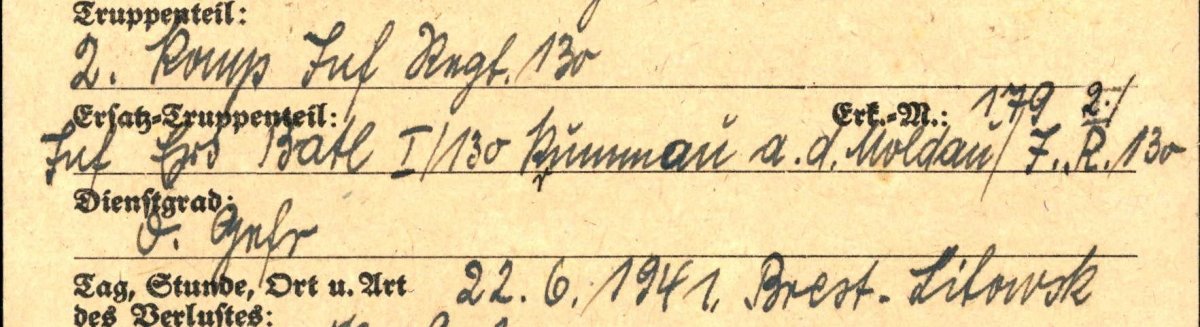 Truppenteil:
2. Komp Inf Regt. 130
Ersatz-Truppenteil: Erk.-M.: 179 2./
Inf Ers Batl I/130 Krummau a.d. Moldau / J. R. 130
Dienstgrad:
O. Gefr
Tag, Stunde, Ort u. Art 22.6.1941. Brest-Litowsk
des Verlustes: